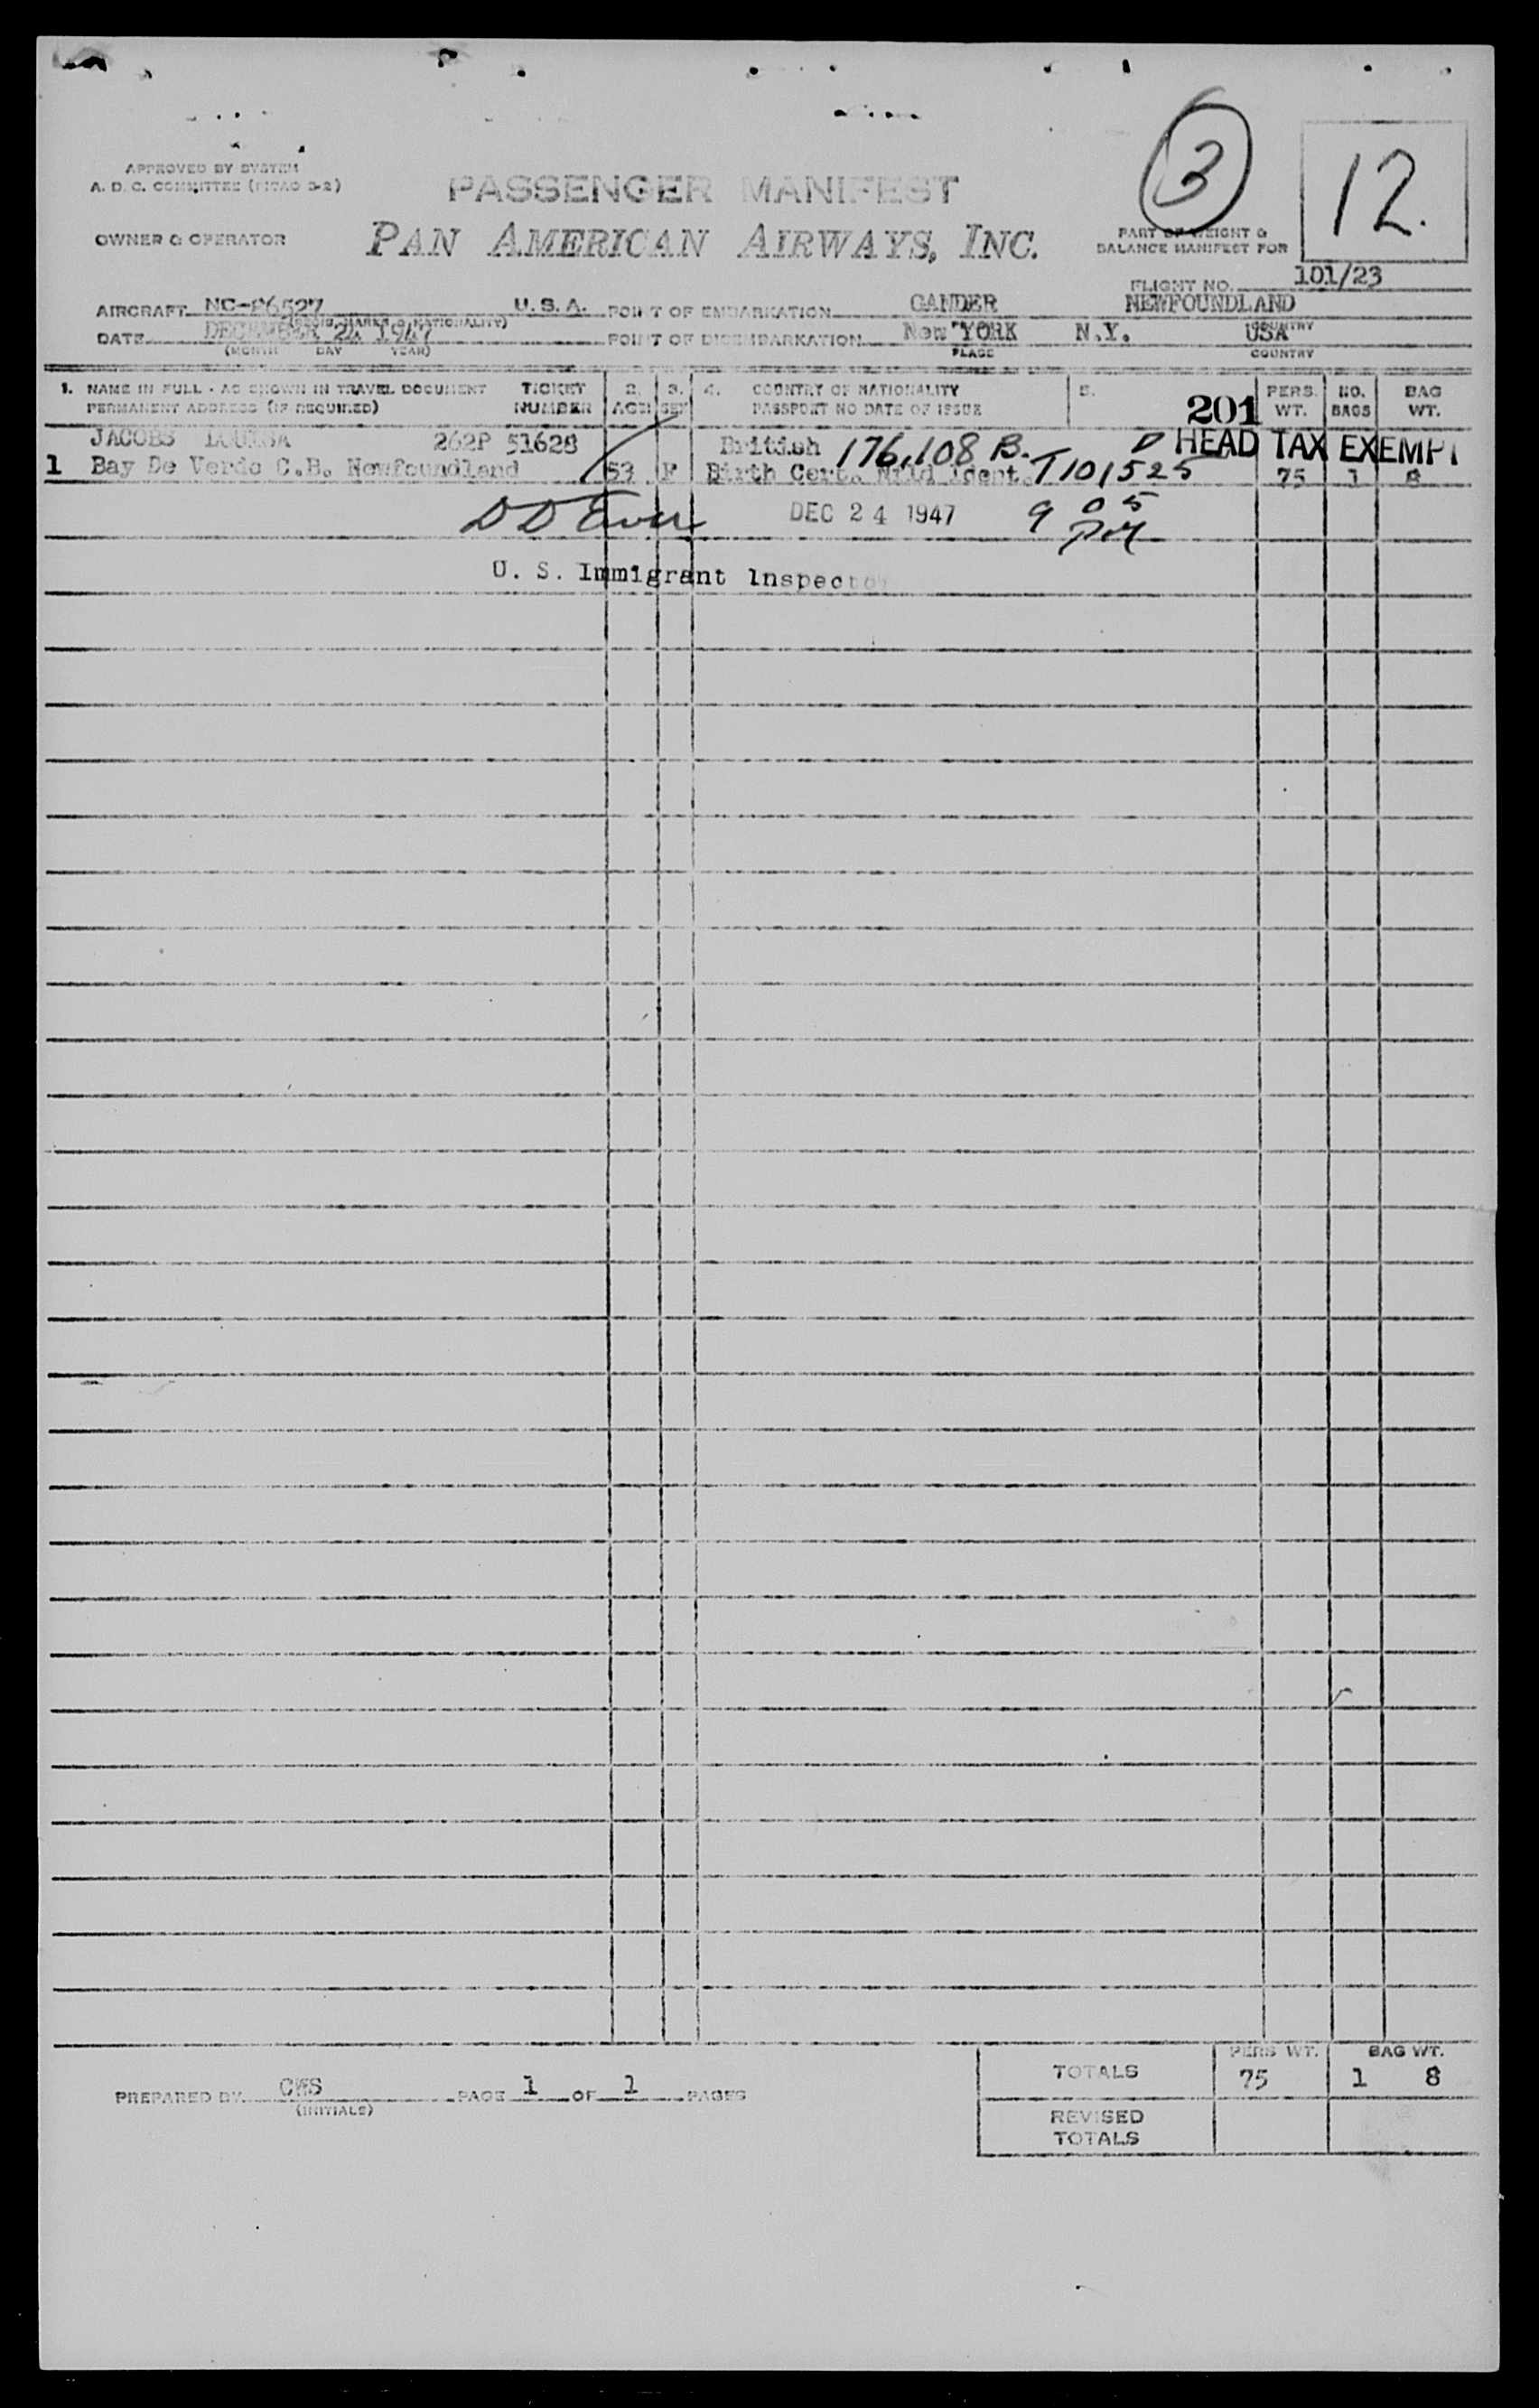 APPROVED BY SYSTEM
A. D. C. COMMITTEE
PASSENGER MANIFEST
3
12.
OWNER & OPERATOR
PAN AMERICAN AIRWAYS, INC.
PART OF WEIGHT &
BALANCE MANIFEST FOR
FLIGHT NO. 101/23
AIRCRAFT NC- U.S.A. POINT OF EMBARKATION GANDER NEWFOUNDLAND
(REGIS. MARKS & NATIONALITY) COUNTRY
DATE DECEMBER 24 1947 POINT OF DISEMBARKATION New YORK N.Y. USA
(MONTH DAY YEAR) PLACE COUNTRY
1. NAME IN FULL - AS SHOWN IN TRAVEL DOCUMENT TICKET 2. 3. 4. COUNTRY OF NATIONALITY 5. PERS. NO. BAG
PERMANENT ADDRESS (IF REQUIRED) NUMBER AGE SEX PASSPORT NO DATE OF ISSUE 201 WT. BAGS WT.
JACOBS 262P 51628 British 176,108 B. HEAD TAX EXEMPT
1 Bay De Verde C.B. Newfoundland 53 F Birth Cert. Nfld ident. T101525 75 1 8
DEC 24 1947 9 05 PM
U. S. Immigrant Inspector
TOTALS PERS WT. BAG WT.
75 1 8
PREPARED BY CMS PAGE 1 OF 1 PAGES
(INITIALS)
REVISED
TOTALS